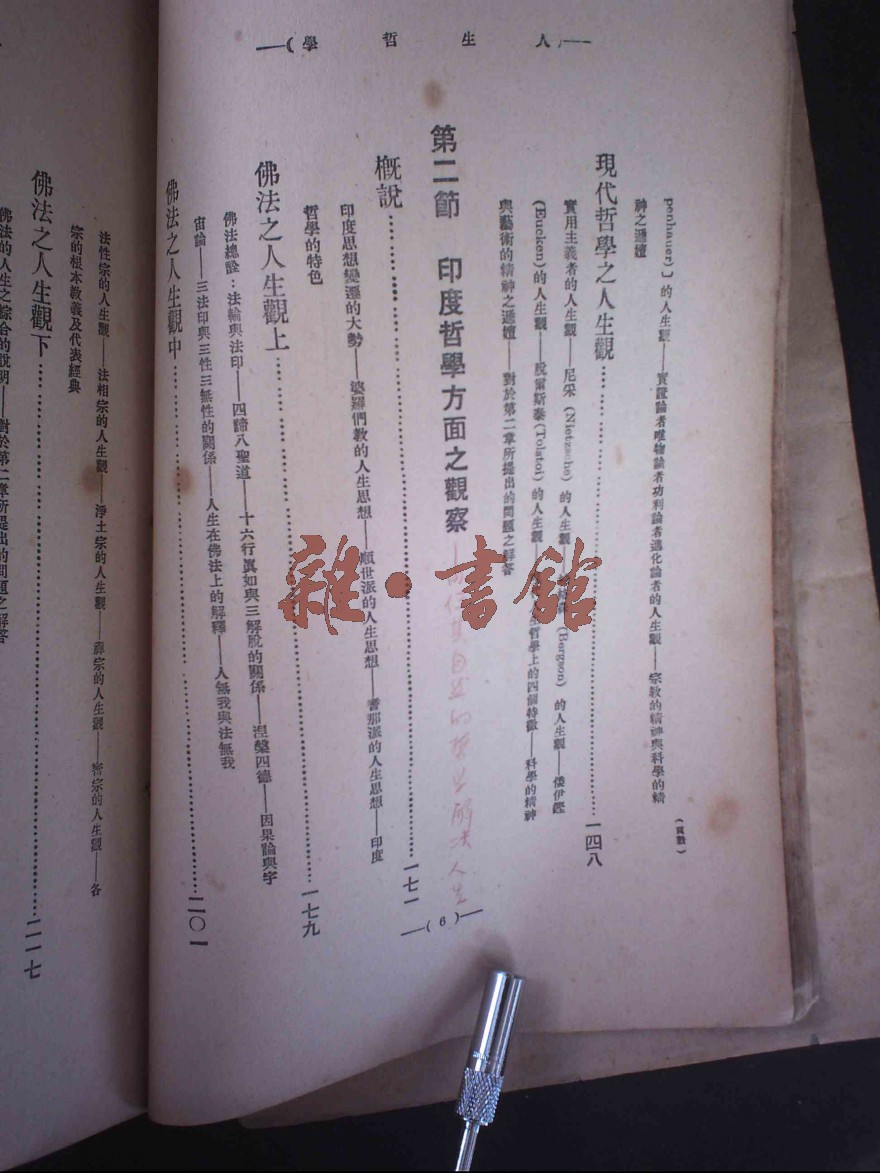 人生哲學
(頁數)
penhauer)〕的人生觀——實證論者唯物論者功利論者進化論者的人生觀——宗教的精神與科學的精
神之遞嬗
現代哲學之人生觀……一四八
實用主義者的人生觀——尼采(Nietzsche)的人生觀——(Bergson)的人生觀——倭伊鏗
(Eucken)的人生觀——脫爾斯泰(Tolstoi)的人生觀——人生哲學上的四個特徵——科學的精神
與藝術的精神之遞嬗——對於第二章所提出的問題之解答
第二節 印度哲學方面之觀察
的哲學解決人生
概說……一七一
印度思想變遷的大勢——婆羅門教的人生思想——順世派的人生思想——耆那派的人生思想——印度
哲學的特色
佛法之人生觀上……一七九
佛法總詮:法輪與法印——四諦八聖道——十六行眞如與三解脫的關係——涅槃四德——因果論與宇
宙論——三法印與三性三無性的關係——人生在佛法上的解釋——人無我與法無我
佛法之人生觀中……二〇一
法性宗的人生觀——法相宗的人生觀——淨土宗的人生觀——禪宗的人生觀——密宗的人生觀——各
宗的根本敎義及代表經典
佛法之人生觀下……二一七
佛法的人生之綜合的說明——對於第二章所提出的問題之解答
(6)
雜·書館